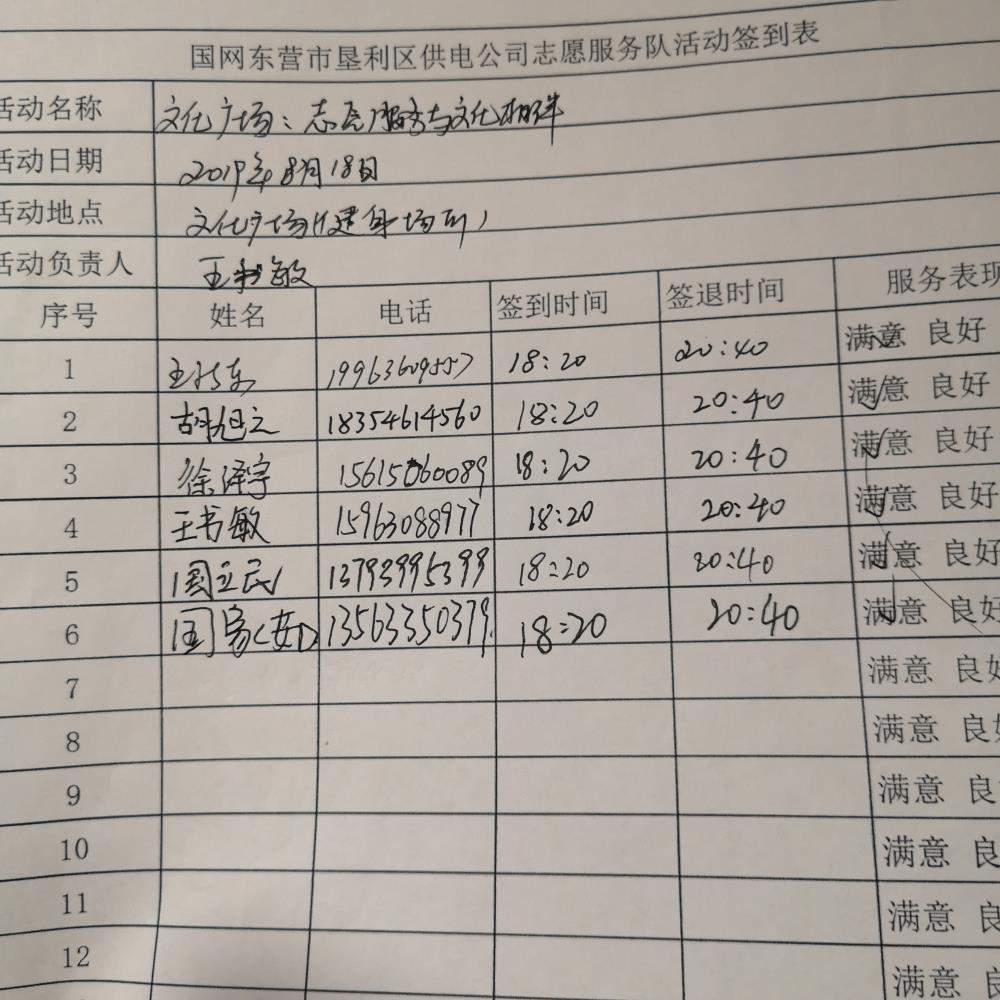 国网东营市垦利区供电公司志愿服务队活动签到表
活动名称 文化广场：志愿服务与文化相伴
活动日期 2019年8月18日
活动地点 文化广场(健身场所)
活动负责人 王书敏
序号 姓名 电话 签到时间 签退时间 服务表现
1 19963609557 18:20 20:40 满意 良好
2 胡旭之 18354614560 18:20 20:40 满意 良好
3 徐泽宇 15615060089 18:20 20:40 满意 良好
4 王书敏 15963088977 18:20 20:40 满意 良好
5 国立民 13793995399 18:20 20:40 满意 良好
6 国家(安) 13563350379 18:20 20:40 满意 良好
7 满意 良好
8 满意 良好
9 满意 良
10 满意 良
11 满意 良
12 满意 良